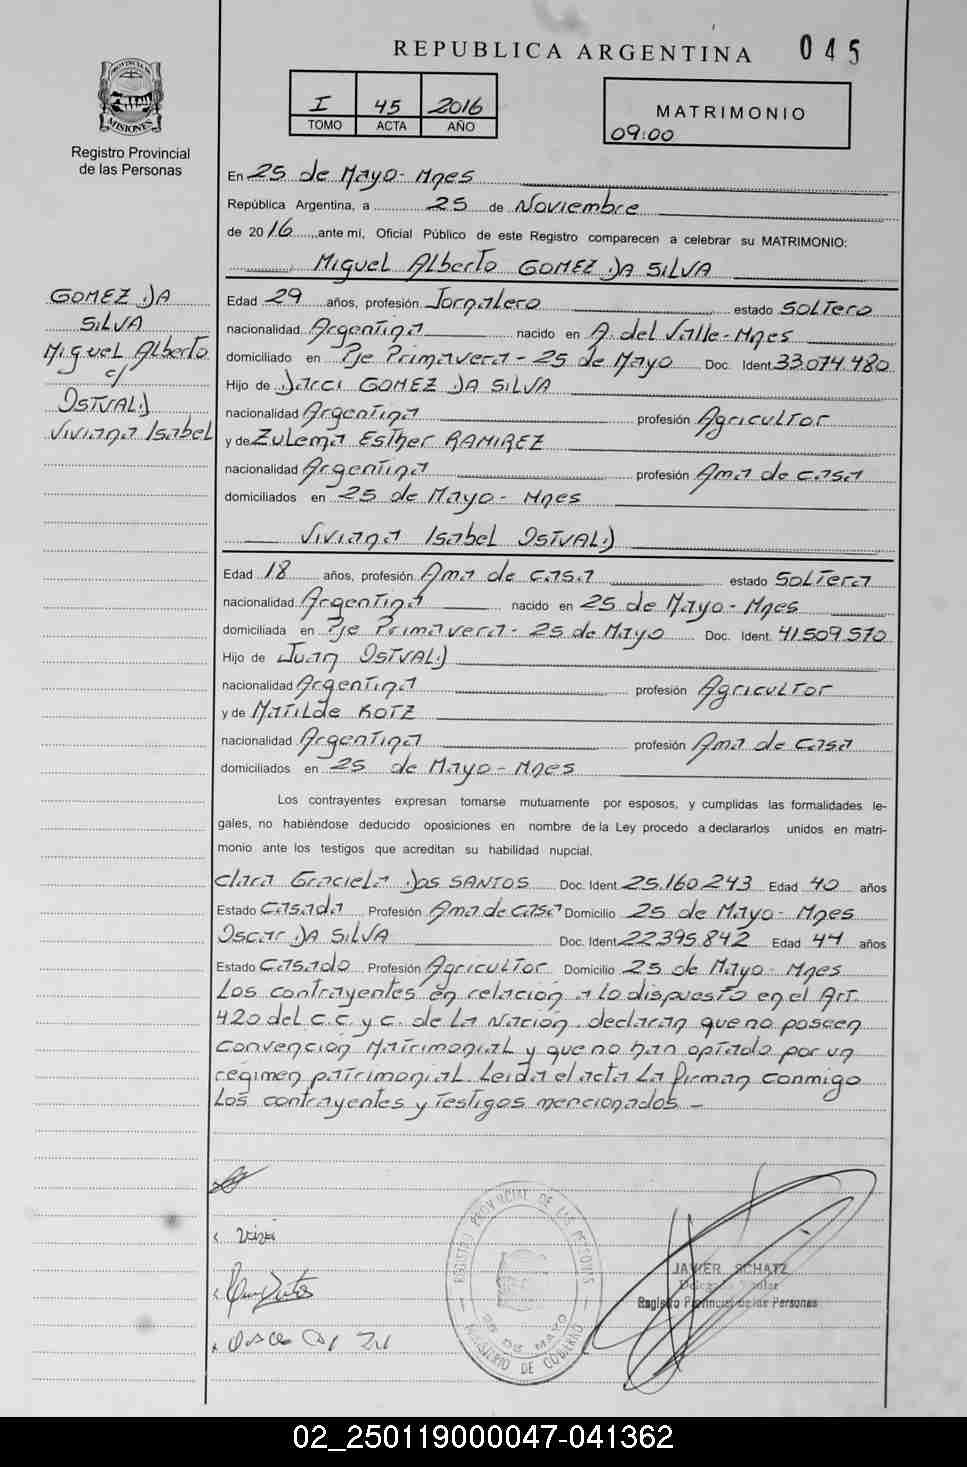 REPUBLICA ARGENTINA 045
PROVINCIA DE
MISIONES
Registro Provincial
de las Personas
I 45 2016
TOMO ACTA AÑO
MATRIMONIO
09:00
En 25 de Mayo - Mnes
República Argentina, a 25 de Noviembre
de 2016, ante mí, Oficial Público de este Registro comparecen a celebrar su MATRIMONIO:
Miguel Alberto GOMEZ DA SILVA
GOMEZ DA
SILVA
Miguel Alberto
c/
OSTVALD
Viviana Isabel
Edad 29 años, profesión Jornalero estado SOLTERO
nacionalidad Argentina nacido en A. del Valle - Mnes
domiciliado en Pje Primavera - 25 de Mayo Doc. Ident. 33.074.480
Hijo de Darci GOMEZ DA SILVA
nacionalidad Argentina profesión Agricultor
y de Zulema Esther RAMIREZ
nacionalidad Argentina profesión Ama de casa
domiciliados en 25 de Mayo - Mnes
Viviana Isabel OSTVALD
Edad 18 años, profesión Ama de casa estado SOLTERA
nacionalidad Argentina nacido en 25 de Mayo - Mnes
domiciliada en Pje Primavera - 25 de Mayo Doc. Ident. 41.509.570
Hijo de Juan OSTVALD
nacionalidad Argentina profesión Agricultor
y de Matilde KOTZ
nacionalidad Argentina profesión Ama de casa
domiciliados en 25 de Mayo - Mnes
Los contrayentes expresan tomarse mutuamente por esposos, y cumplidas las formalidades le-
gales, no habiéndose deducido oposiciones en nombre de la Ley procedo a declararlos unidos en matri-
monio ante los testigos que acreditan su habilidad nupcial.
Clara Graciela Dos SANTOS Doc. Ident. 25.160.243 Edad 40 años
Estado Casada Profesión Ama de casa Domicilio 25 de Mayo - Mnes
Oscar DA SILVA Doc. Ident. 22.395.842 Edad 44 años
Estado Casado Profesión Agricultor Domicilio 25 de Mayo - Mnes
Los contrayentes en relación a lo dispuesto en el Art.
420 del C.C. y C. de la Nación, declaran que no poseen
convención matrimonial y que no han optado por un
regimen patrimonial. Leida el acta la firman conmigo
los contrayentes y testigos mencionados. -
REGISTRO PROVINCIAL DE LAS PERSONAS
25 DE MAYO
MINISTERIO DE GOBIERNO
JAVIER SCHATZ
Delegado Titular
Registro Provincial de las Personas
02_250119000047-041362